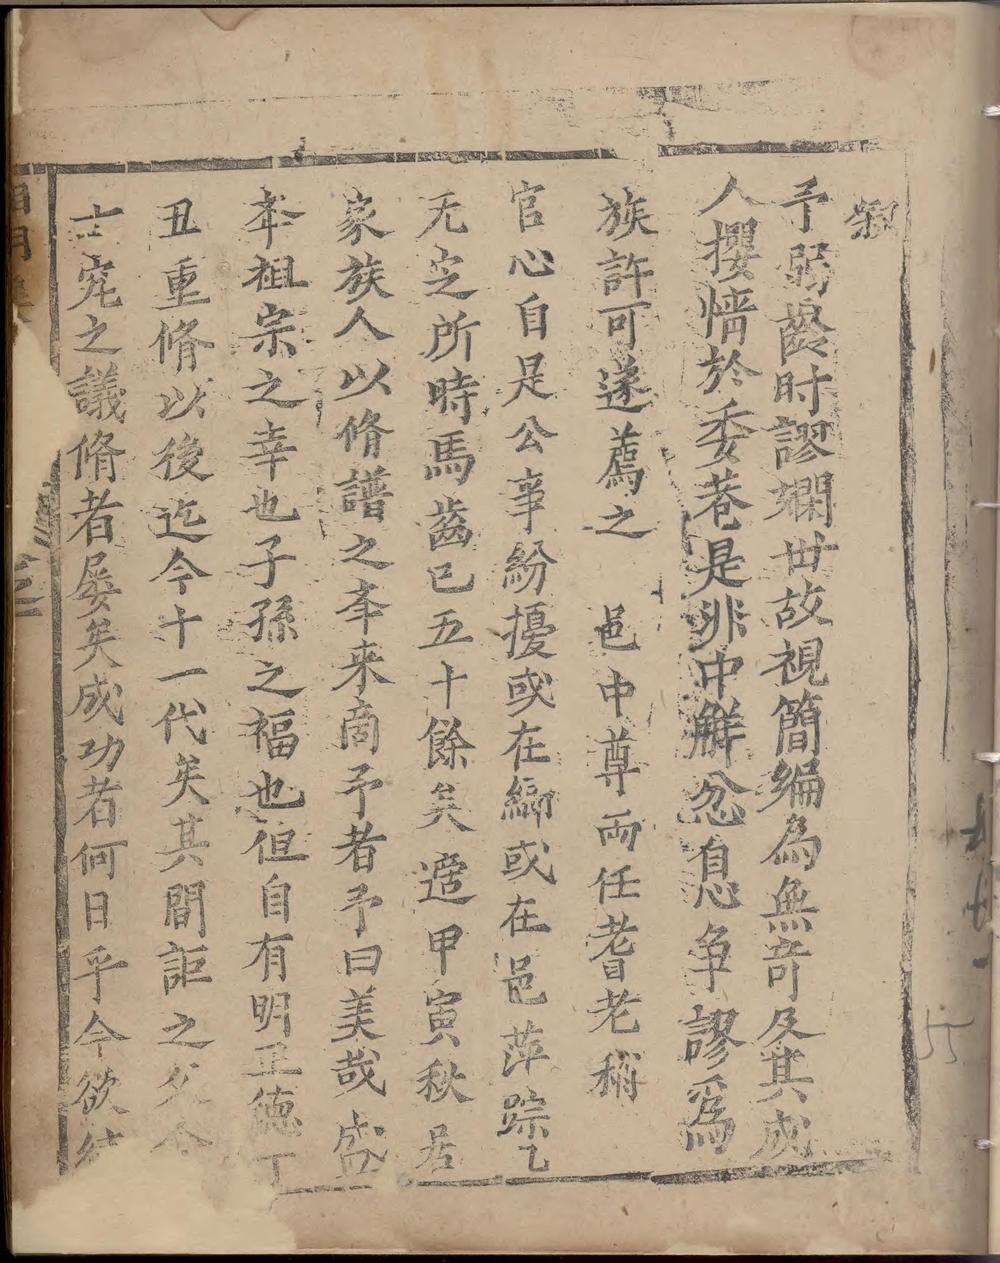 叙
予弱齡时謬嫻世故視簡編為無奇及其成
人攖情於委巷是非中觧忿息争謬爲
族許可遂薦之 邑中尊両任耆老稱
官心自是公事紛擾或在鄉或在邑萍踪
无定所時馬齒已五十餘矣 甲寅秋居
家族人以脩譜之来商予者予曰美哉盛
祖宗之幸也子孫之福也但自有明正德丁
丑重脩以後迄今十一代矣其間詎之
士究之議脩者屡矣成功者何日乎今欲
55